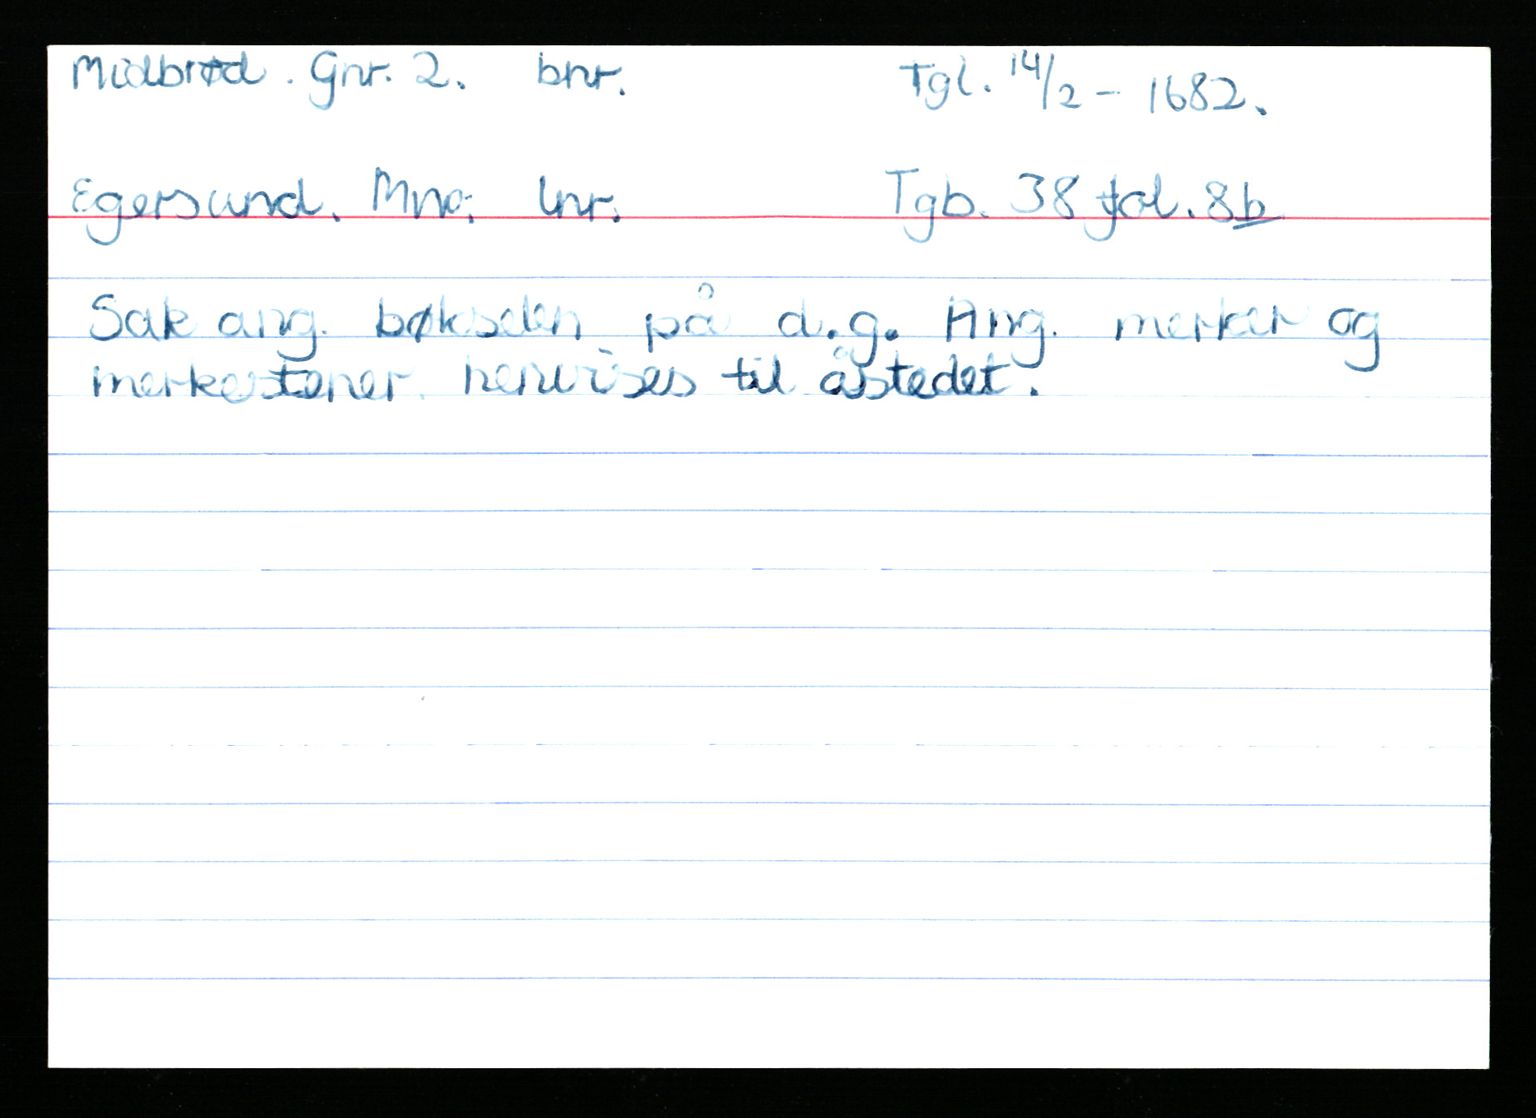 Midbrød. Gnr. 2. bnr. Tgl. 14/2 - 1682.
Egersund. Mno: lnr. Tgb. 38 fol. 8b
Sak ang. bøkselen på d.g. Ang. merker og
merkestener henvises til åstedet.